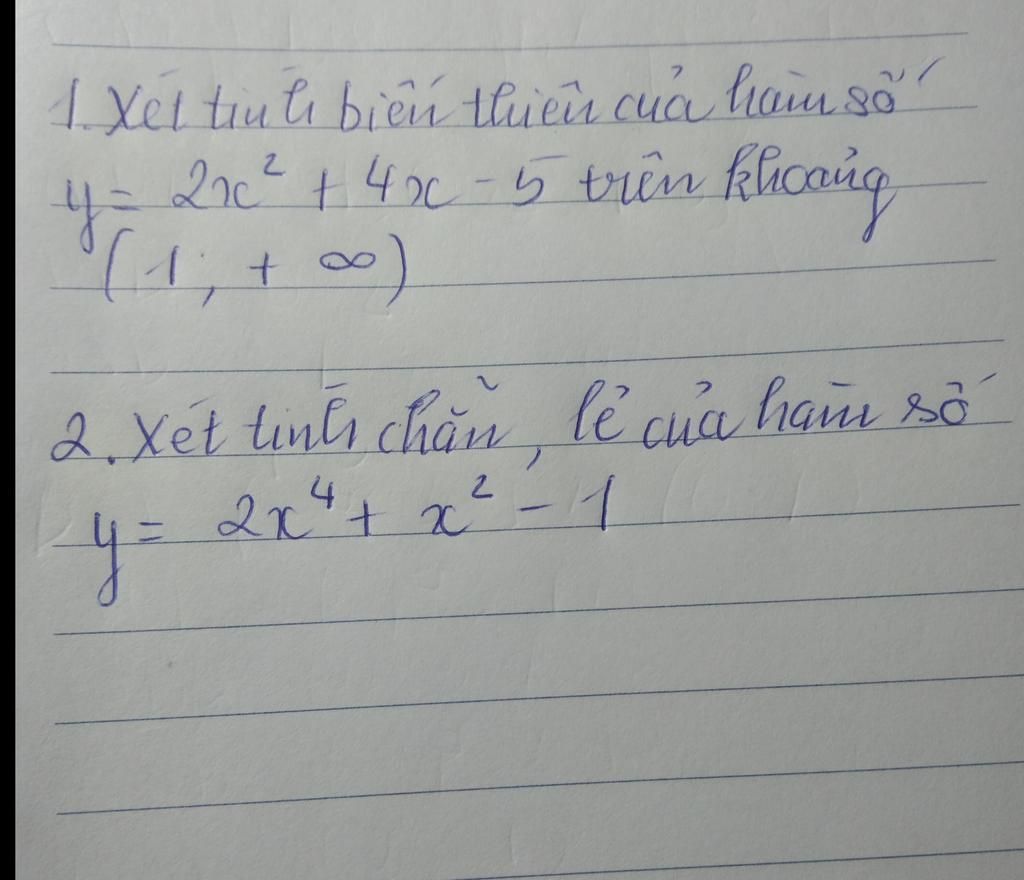 1. Xét tính biến thiên của hàm số
y = 2x² + 4x - 5 trên khoảng
(1; + ∞)
2. Xét tính chẵn, lẻ của hàm số
y = 2x⁴ + x² - 1